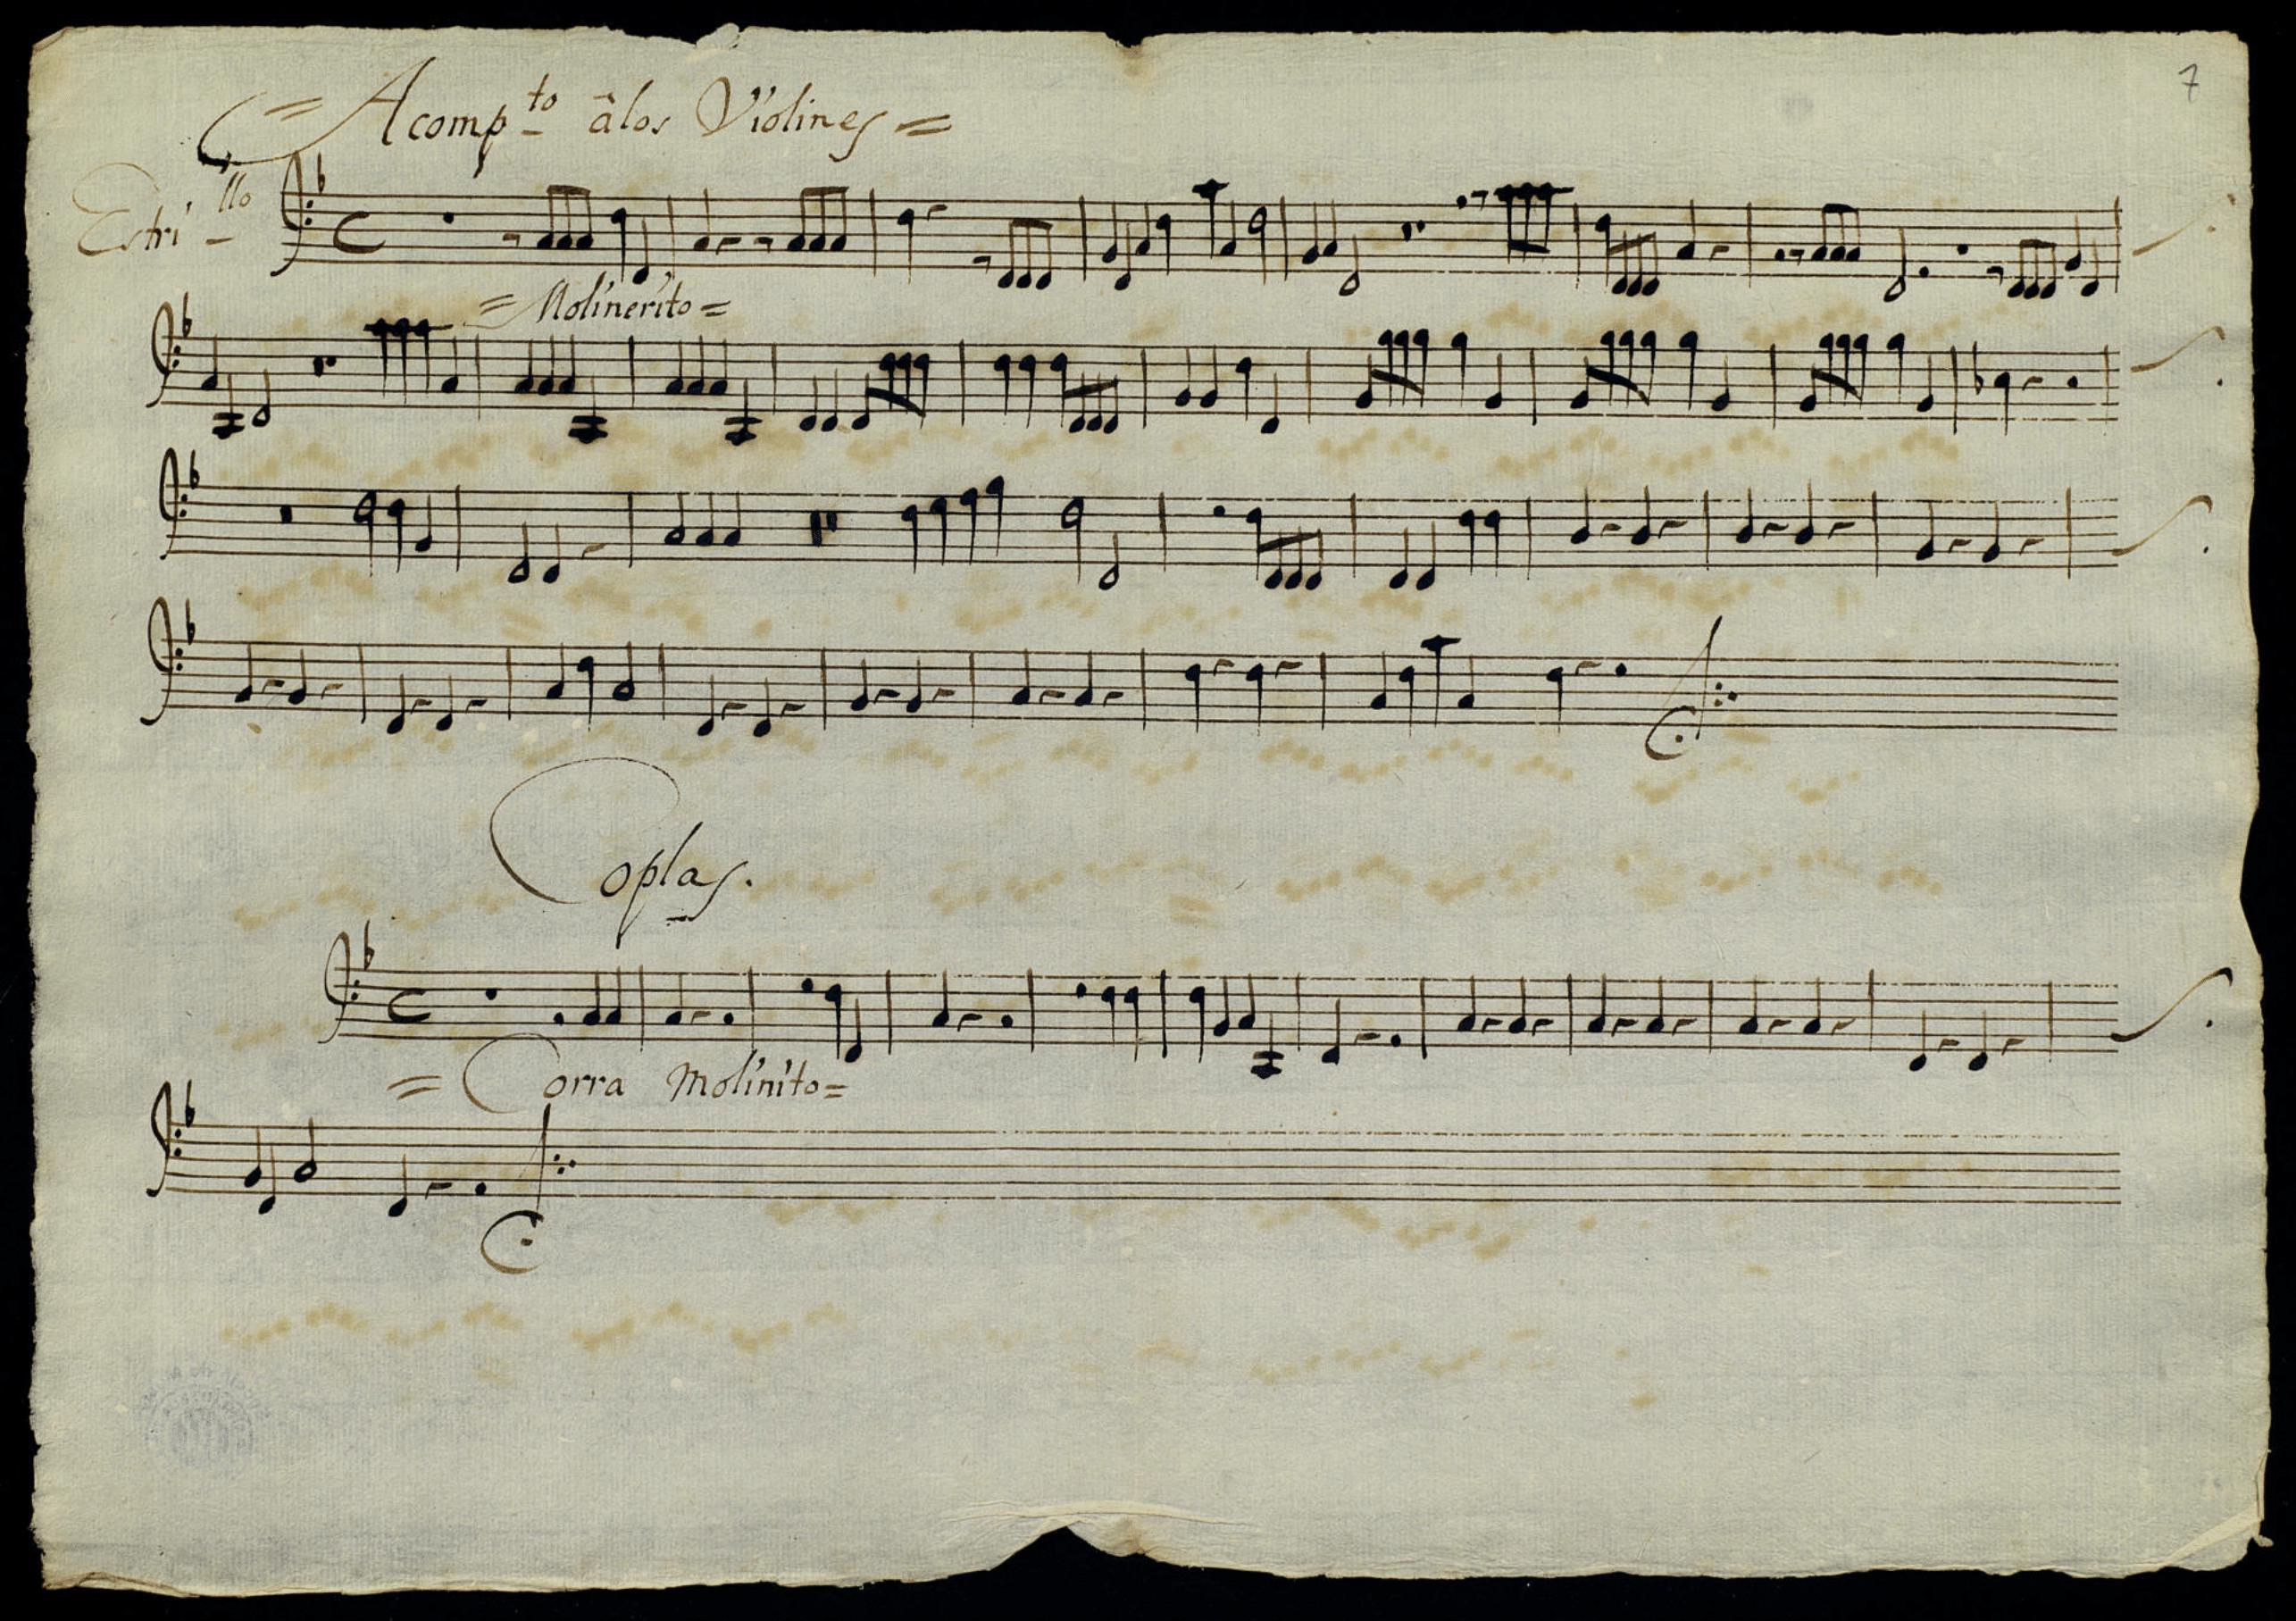 = Acomp.to â los Violines =
7
Estri-llo
= Molinerito =
Coplas.
= Corra Molinito =